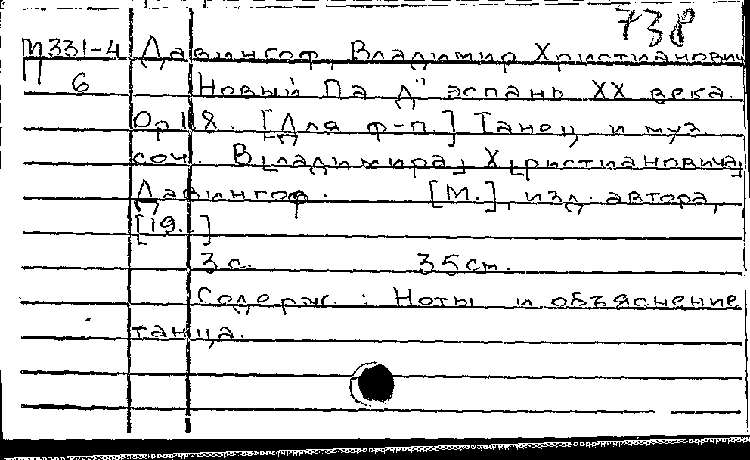 738
П331-4 Давингоф, Владимир Христианович
6 Новый Па д'эспань XX века.
Op 18. [Для ф-п.] Танец и муз.
соч. В[ладимира] Х[ристиановича]
Давингоф. [М.], изд. автора,
[19. ]
3 с. 35 см.
Содерж.: Ноты и объяснение
танца.